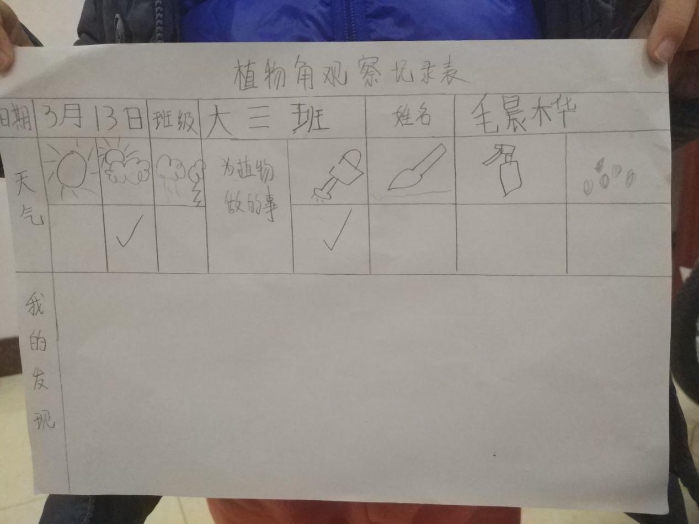 植物角观察记录表
日期 3月13日 班级 大三班 姓名 毛晨木华
天气 为植物做的事
我的发现